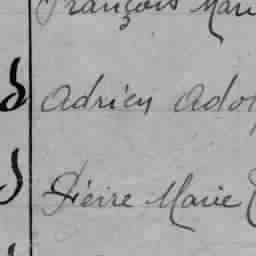 François Mari
Adrien Ado
Pierre Marie